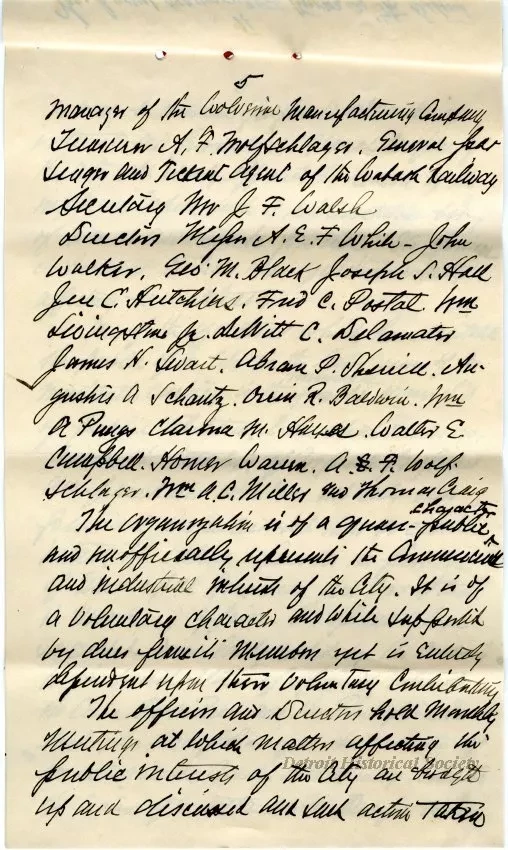 5
Manager of the Wolverine Manufacturing Company
Treasurer A. F. Wolfschlager. General Pas-
senger and Ticket Agent of the Wabash Railway
Secretary Mr J. F. Walsh
Directors Messrs A. E. F. White - John
Walker. Geo. M. Black Joseph S. Hall
Jere C. Hutchins. Fred C. Postal. Wm
Livingstone Jr. DeWitt C. Delamater
James H. Swart. Abram P. Sherrill. Au-
gustus A Schantz. Orrin R. Baldwin. Wm
A Pungs Clarence M. Walter E.
Campbell. Homer Warren. A. F. Wolf-
schlager. Wm A. C. Miller and Thomas Craig
The organization is of a quasi-public character
and unofficially represents the Commercial
and industrial interests of the City. It is of
a voluntary character and while supported
by dues from its Members yet is entirely
dependent upon their voluntary Contributions
The officers and Directors hold Monthly
Meetings at which matters affecting the
public interests of the City are brought
up and discussed and such action taken
Detroit Historical Society